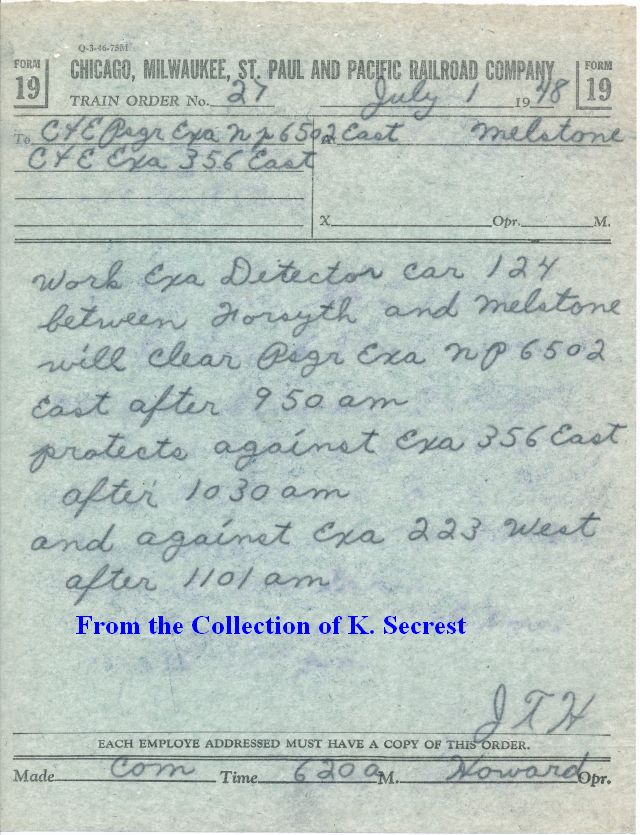 Q-3-46-75M
FORM 19
CHICAGO, MILWAUKEE, ST. PAUL AND PACIFIC RAILROAD COMPANY
FORM 19
TRAIN ORDER No. 27 July 1 1948
To C&E Psgr Exa NP 6502 East Melstone
C&E Exa 356 East
X Opr. M.
Work Exa Detector car 124
between Forsyth and Melstone
will clear Psgr Exa NP 6502
East after 950 am
protects against Exa 356 East
after 1030 am
and against Exa 223 West
after 1101 am
From the Collection of K. Secrest
JTH
EACH EMPLOYE ADDRESSED MUST HAVE A COPY OF THIS ORDER.
Made Com Time 620a M. Howard Opr.